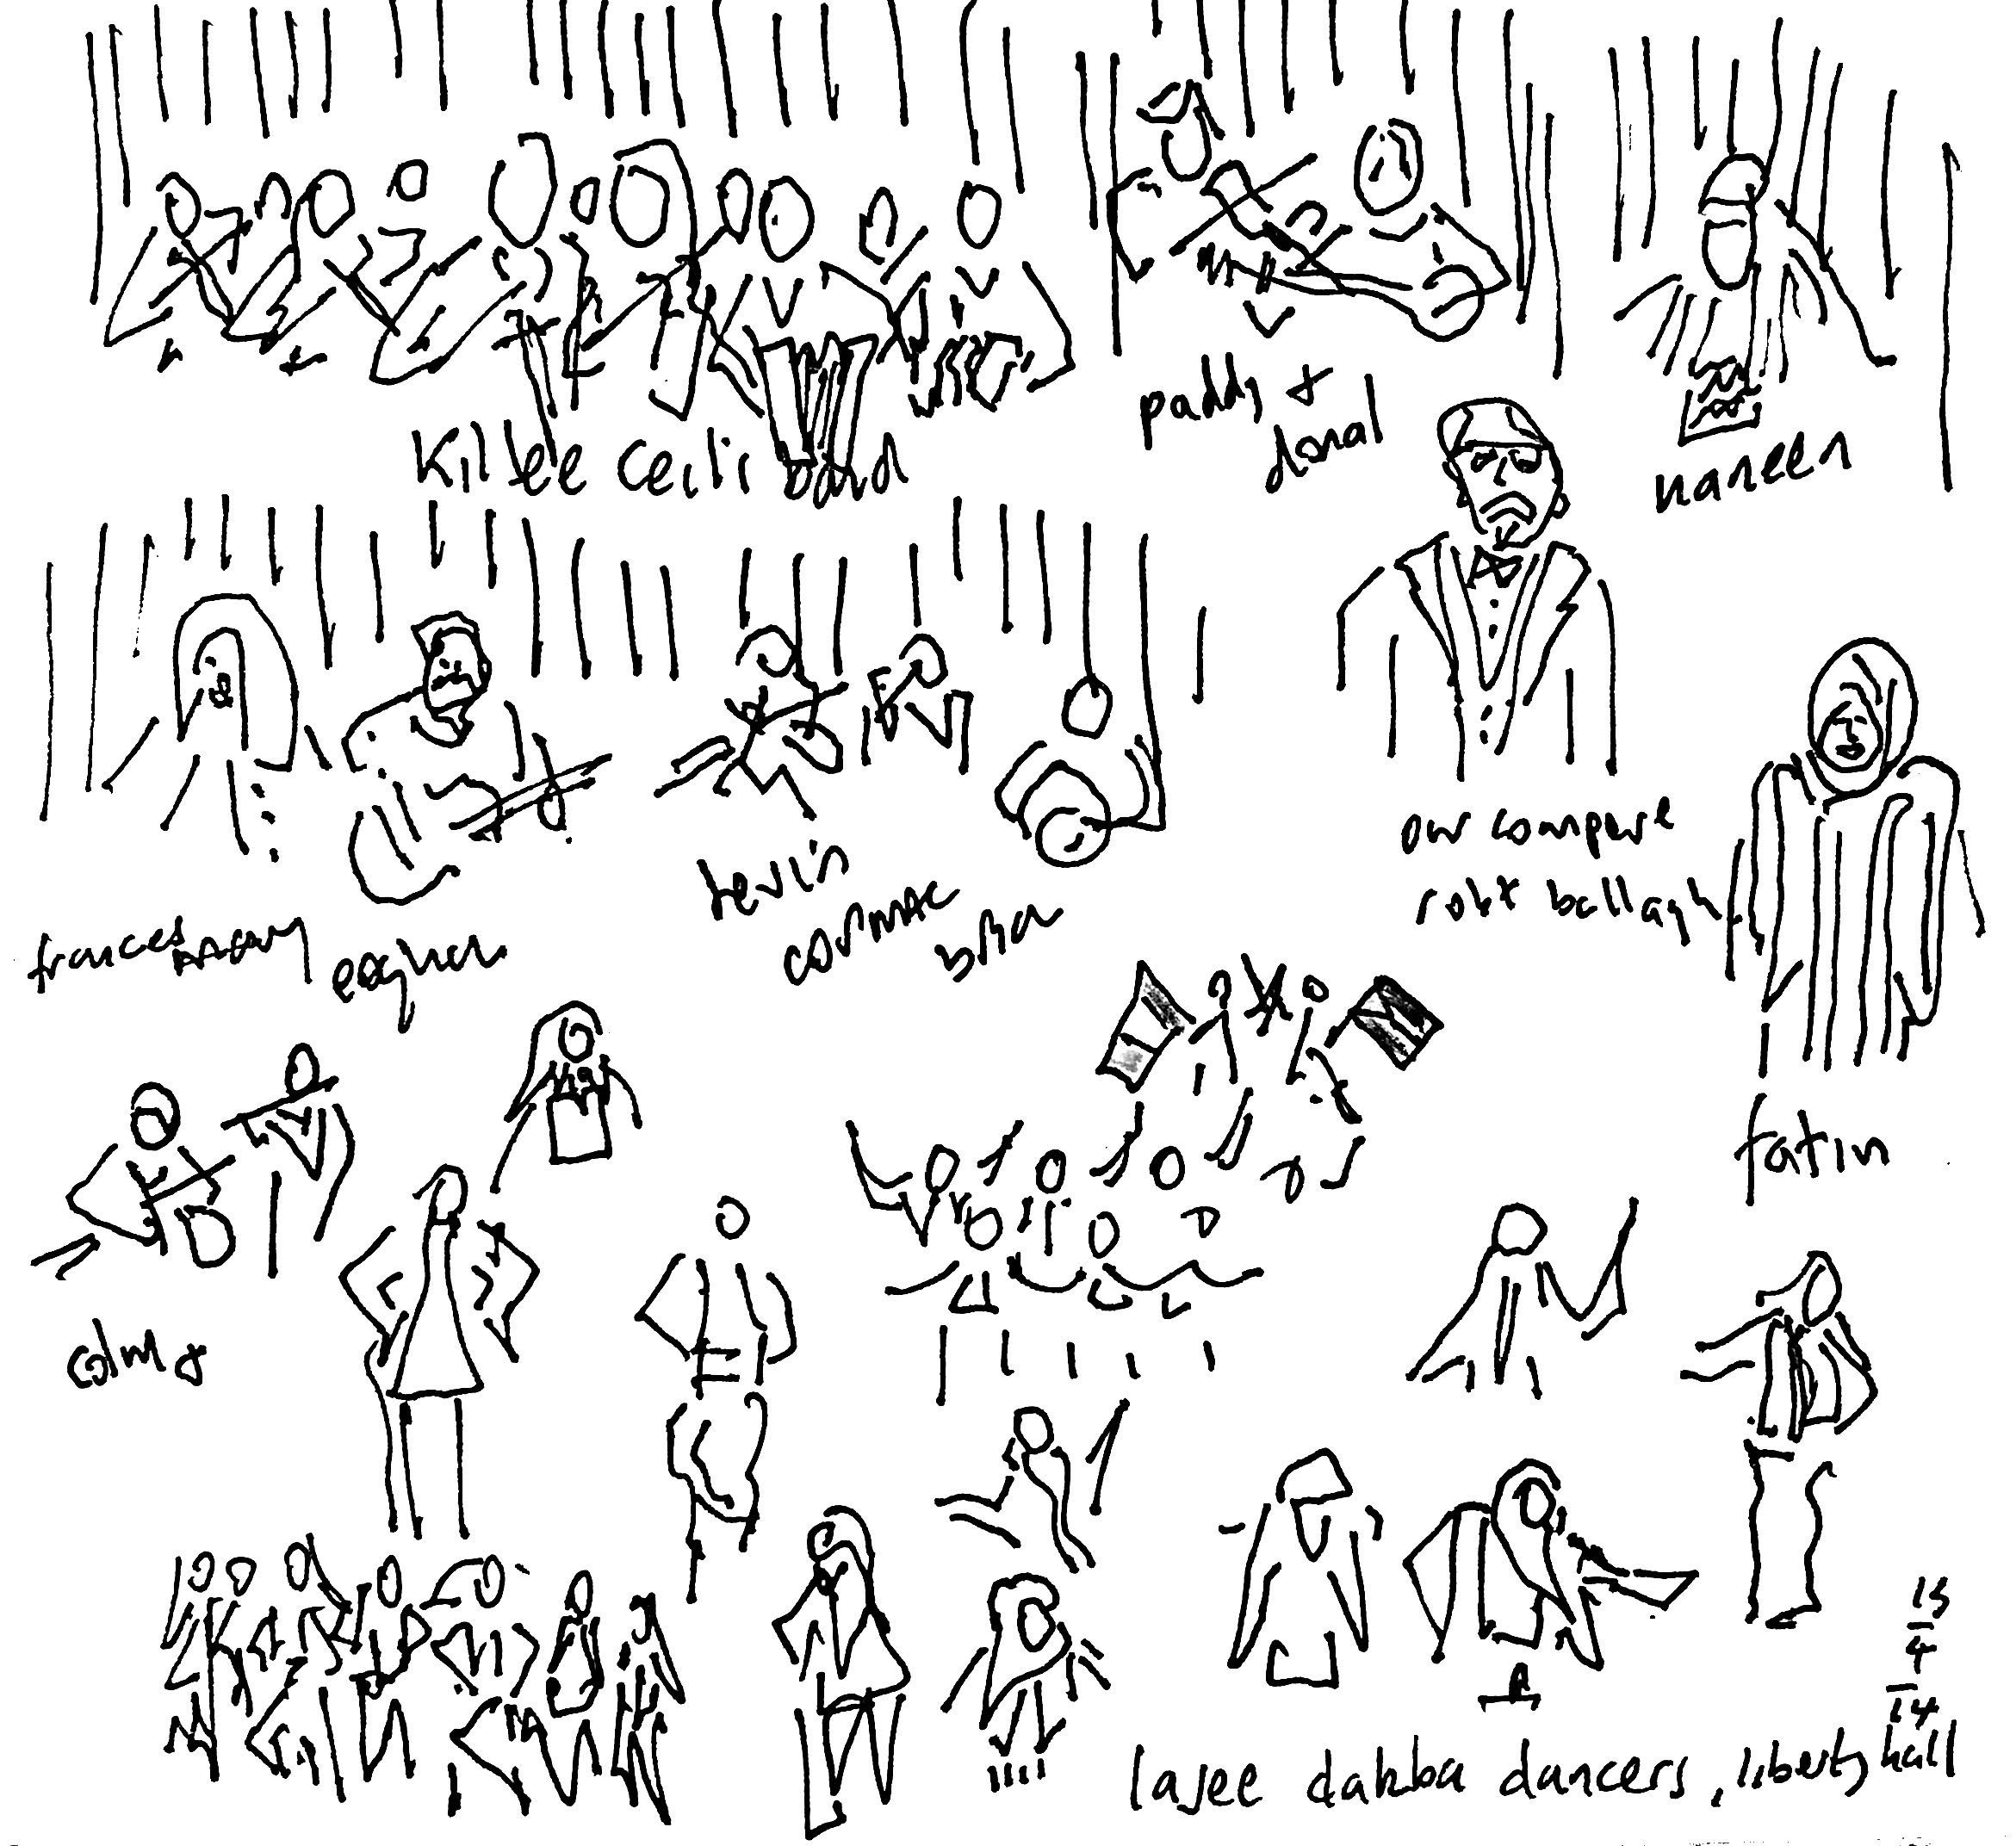 Kilfee Ceili band
paddy &
donal
naneen
our compere
robt ballagh
frances
eoghan
kevin
cormac
brian
fatin
colm &
15
4
14
lajee dahba dancers, liberty hall